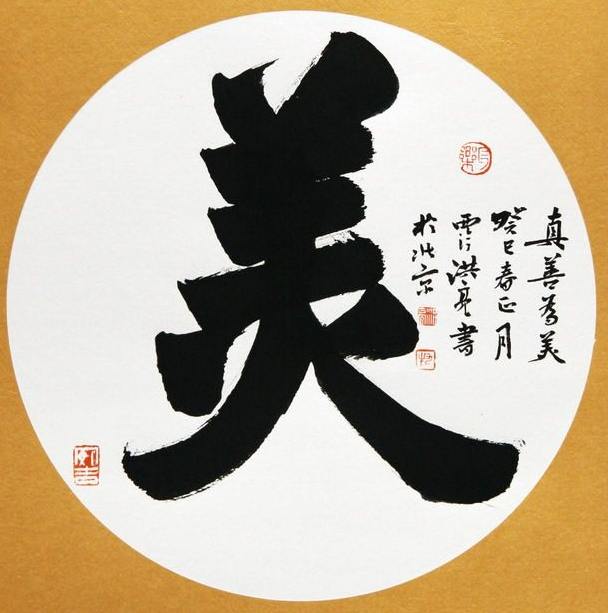 美
真善為美
癸巳春正月
雲行洪亮書
於北京